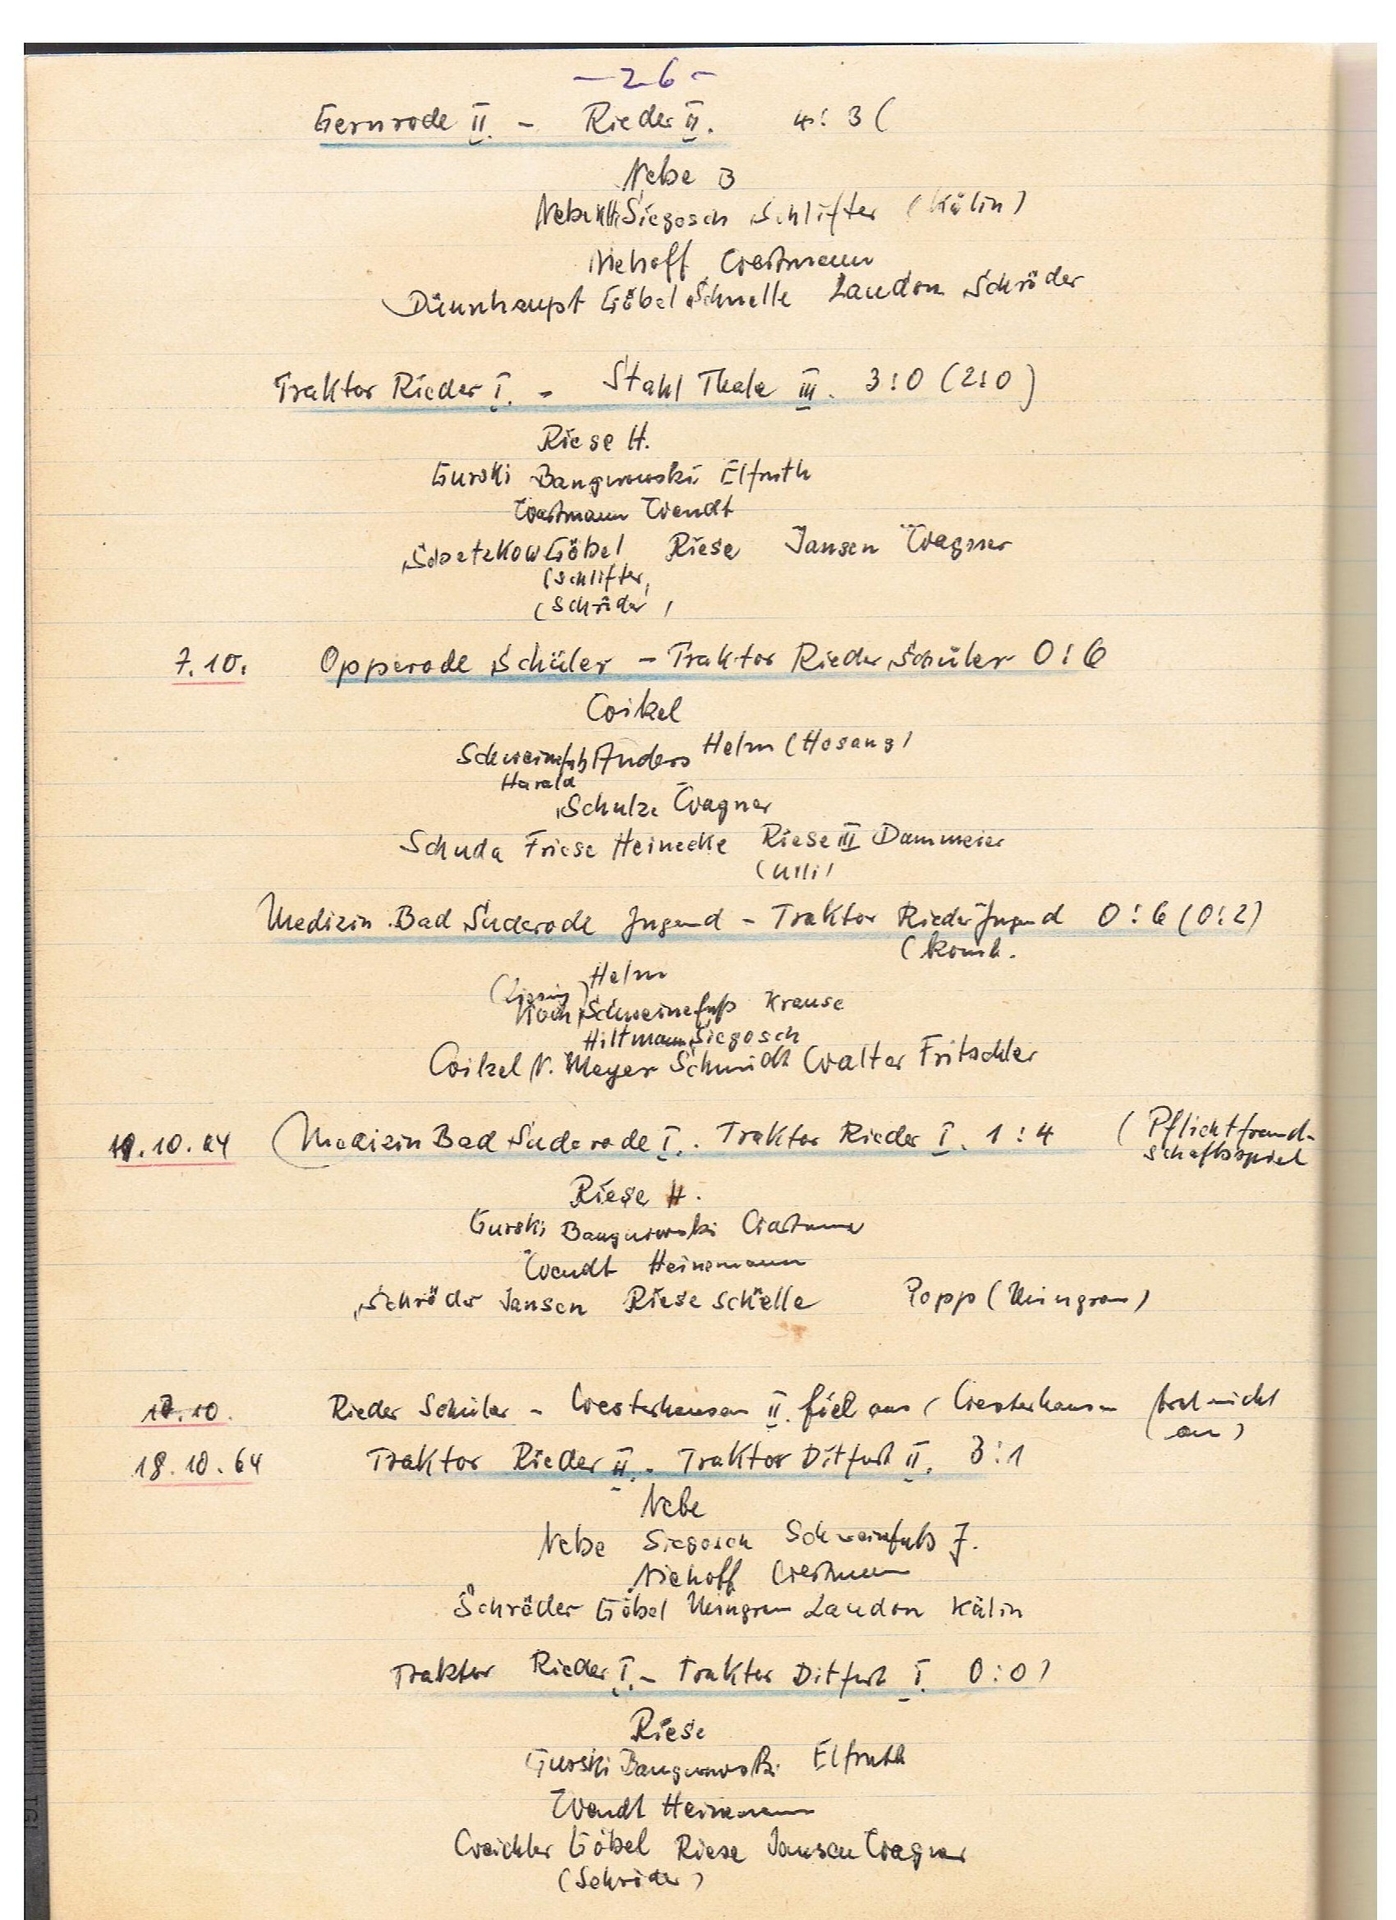 - 26 -
Gernrode II. - Rieder II. 4:3 (
Nebe B
Nebe Siegosch Schlifter (Kälin)
Niehoff Westmann
Dünnhaupt Göbel Schnelle Laudon Schröder
Traktor Rieder I. - Stahl Thale III. 3:0 (2:0)
Riese H.
Gurski Bangnowski Elfruth
Westmann Wendt
Göbel Riese Jansen Wagner
(Schlifter,
(Schröder)
7.10. Opperode Schüler - Traktor Rieder Schüler 0:6
Weikel
Schweinfuß Anders Helm (Hosang)
Harald
Schulze Wagner
Schuda Friese Heinecke Riese III Dammeier
(Ulli)
Medizin Bad Suderode Jugend - Traktor Rieder Jugend 0:6 (0:2)
(komb.
Helm
Koch Schweinefuß Krause
Hiltmann Siegosch
Weikel N. Meyer Schmidt Walter Fritschler
10.10.64 (Medizin Bad Suderode I. - Traktor Rieder I. 1:4 (Pflichtfreund-
schaftsspiel
Riese H.
Gurski Bangnowski Westmann
Wendt Heinemann
Schröder Jansen Riese Schelle Popp (Weingran)
17.10. Rieder Schüler - Westerhausen II. fiel aus (Westerhausen trat nicht
an)
18.10.64 Traktor Rieder II. - Traktor Ditfurt II. 3:1
Nebe
Nebe Siegosch Schweinfuß J.
Niehoff Westmann
Schröder Göbel Weingran Laudon Kälin
Traktor Rieder I. - Traktor Ditfurt I. 0:0)
Riese
Gurski Bangnowski Elfruth
Wendt Heinemann
Weichler Göbel Riese Jansen Wagner
(Schröder)